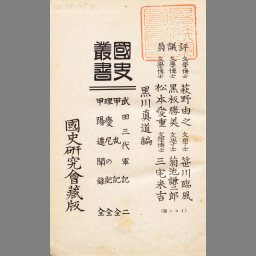 評議員
文學博士 萩野由之 文學士 笹川臨風
文學博士 黒板勝美 文學士 菊池謙二郎
文學博士 松本愛重 文學博士 三宅米吉
黒川真道編
國史叢書
武田三代軍記 二
甲亂記 全
理慶尼の記 全
甲陽遺聞録 全
國史研究會藏版